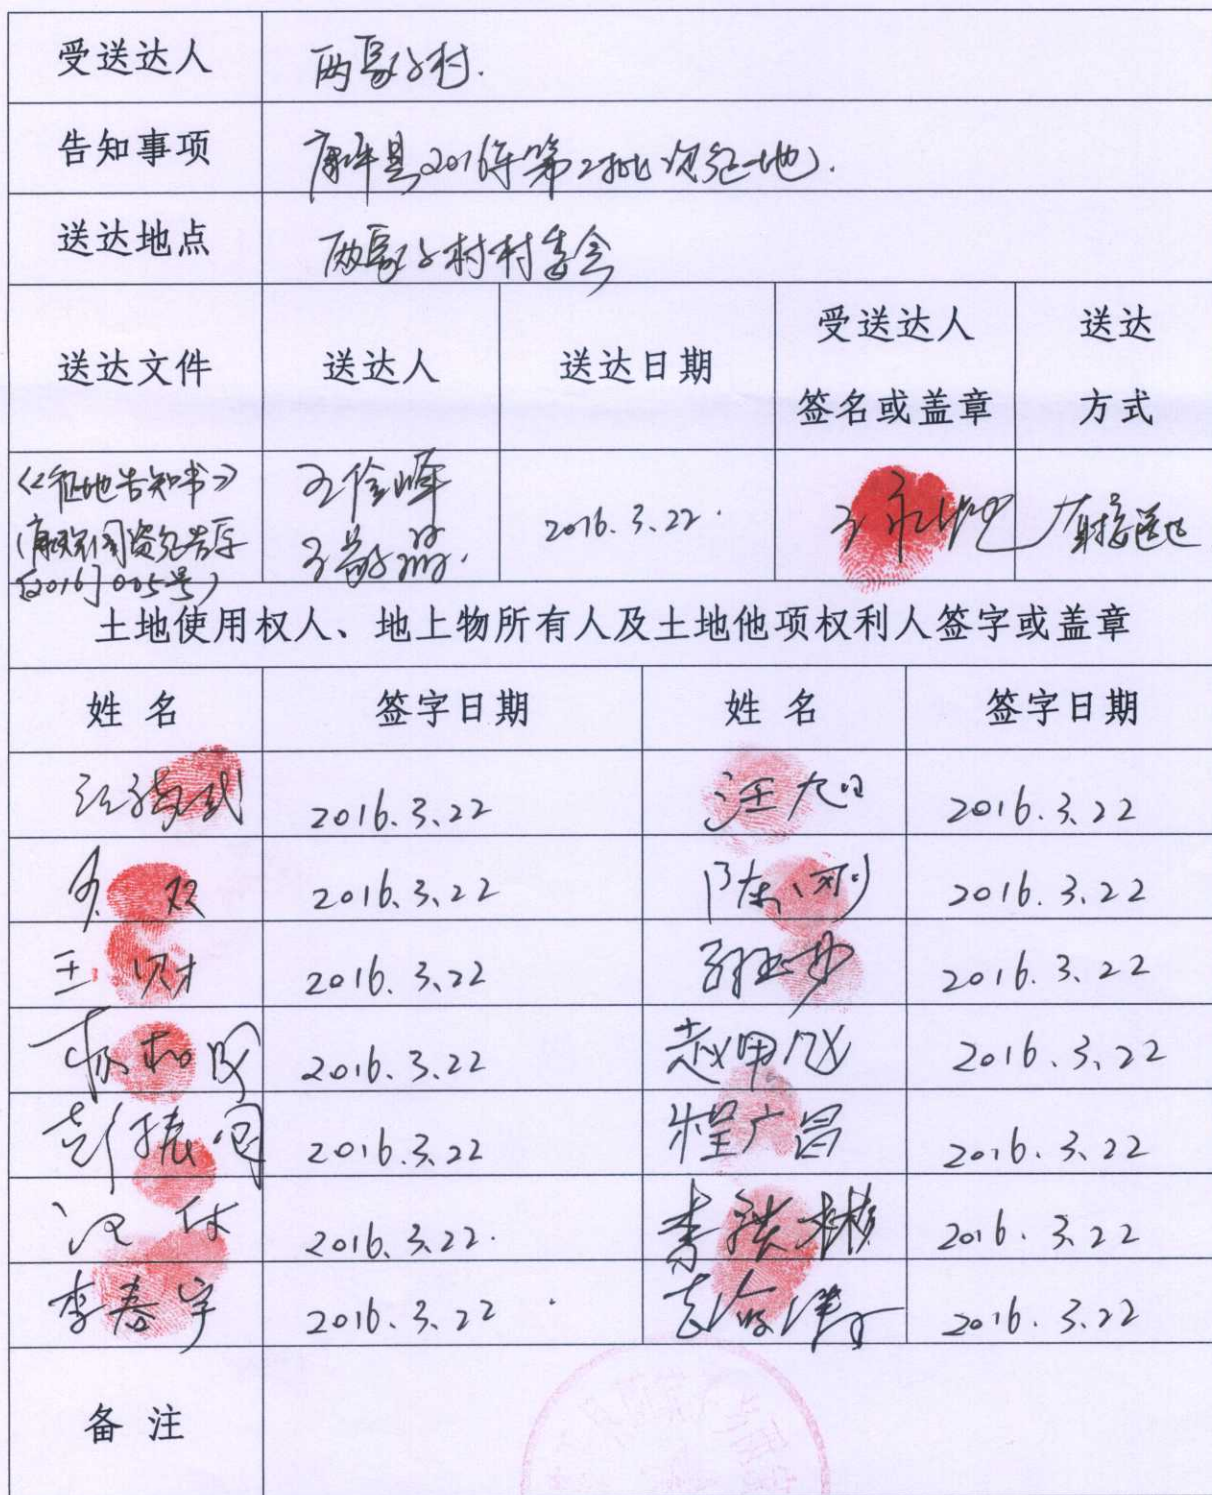 受送达人 两家子村.
告知事项 康平县2016年第2批次征地.
送达地点 两家子村村委会
送达文件 送达人 送达日期 受送达人 送达
签名或盖章 方式
《征地告知书》
2016.3.22. 直接送达
[2016]005号)
土地使用权人、地上物所有人及土地他项权利人签字或盖章
姓名 签字日期 姓名 签字日期
2016.3.22 汪旭 2016.3.22
双 2016.3.22 陈刚 2016.3.22
王财 2016.3.22 2016.3.22
2016.3.22 赵甲飞 2016.3.22
彭振国 2016.3.22 程广昌 2016.3.22
2016.3.22. 李洪彬 2016.3.22
李春宇 2016.3.22 2016.3.22
备注